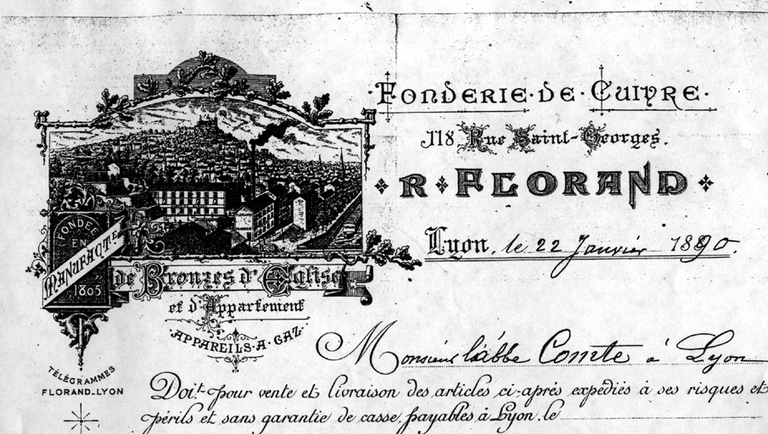 FONDERIE·DE·CUIVRE·
118 Rue Saint-Georges.
R·FLORAND
Lyon, le 22 Janvier 1890.
FONDÉE
EN
1805
MANUFACTE
de Bronzes d'Eglise
et d'Appartement
APPAREILS·A·GAZ
TÉLÉGRAMMES
FLORAND_LYON
Monsieur l'abbe Comte à Lyon
Doit pour vente et livraison des articles ci-après expédiés à ses risques et
périls et sans garantie de casse, payables à Lyon, le